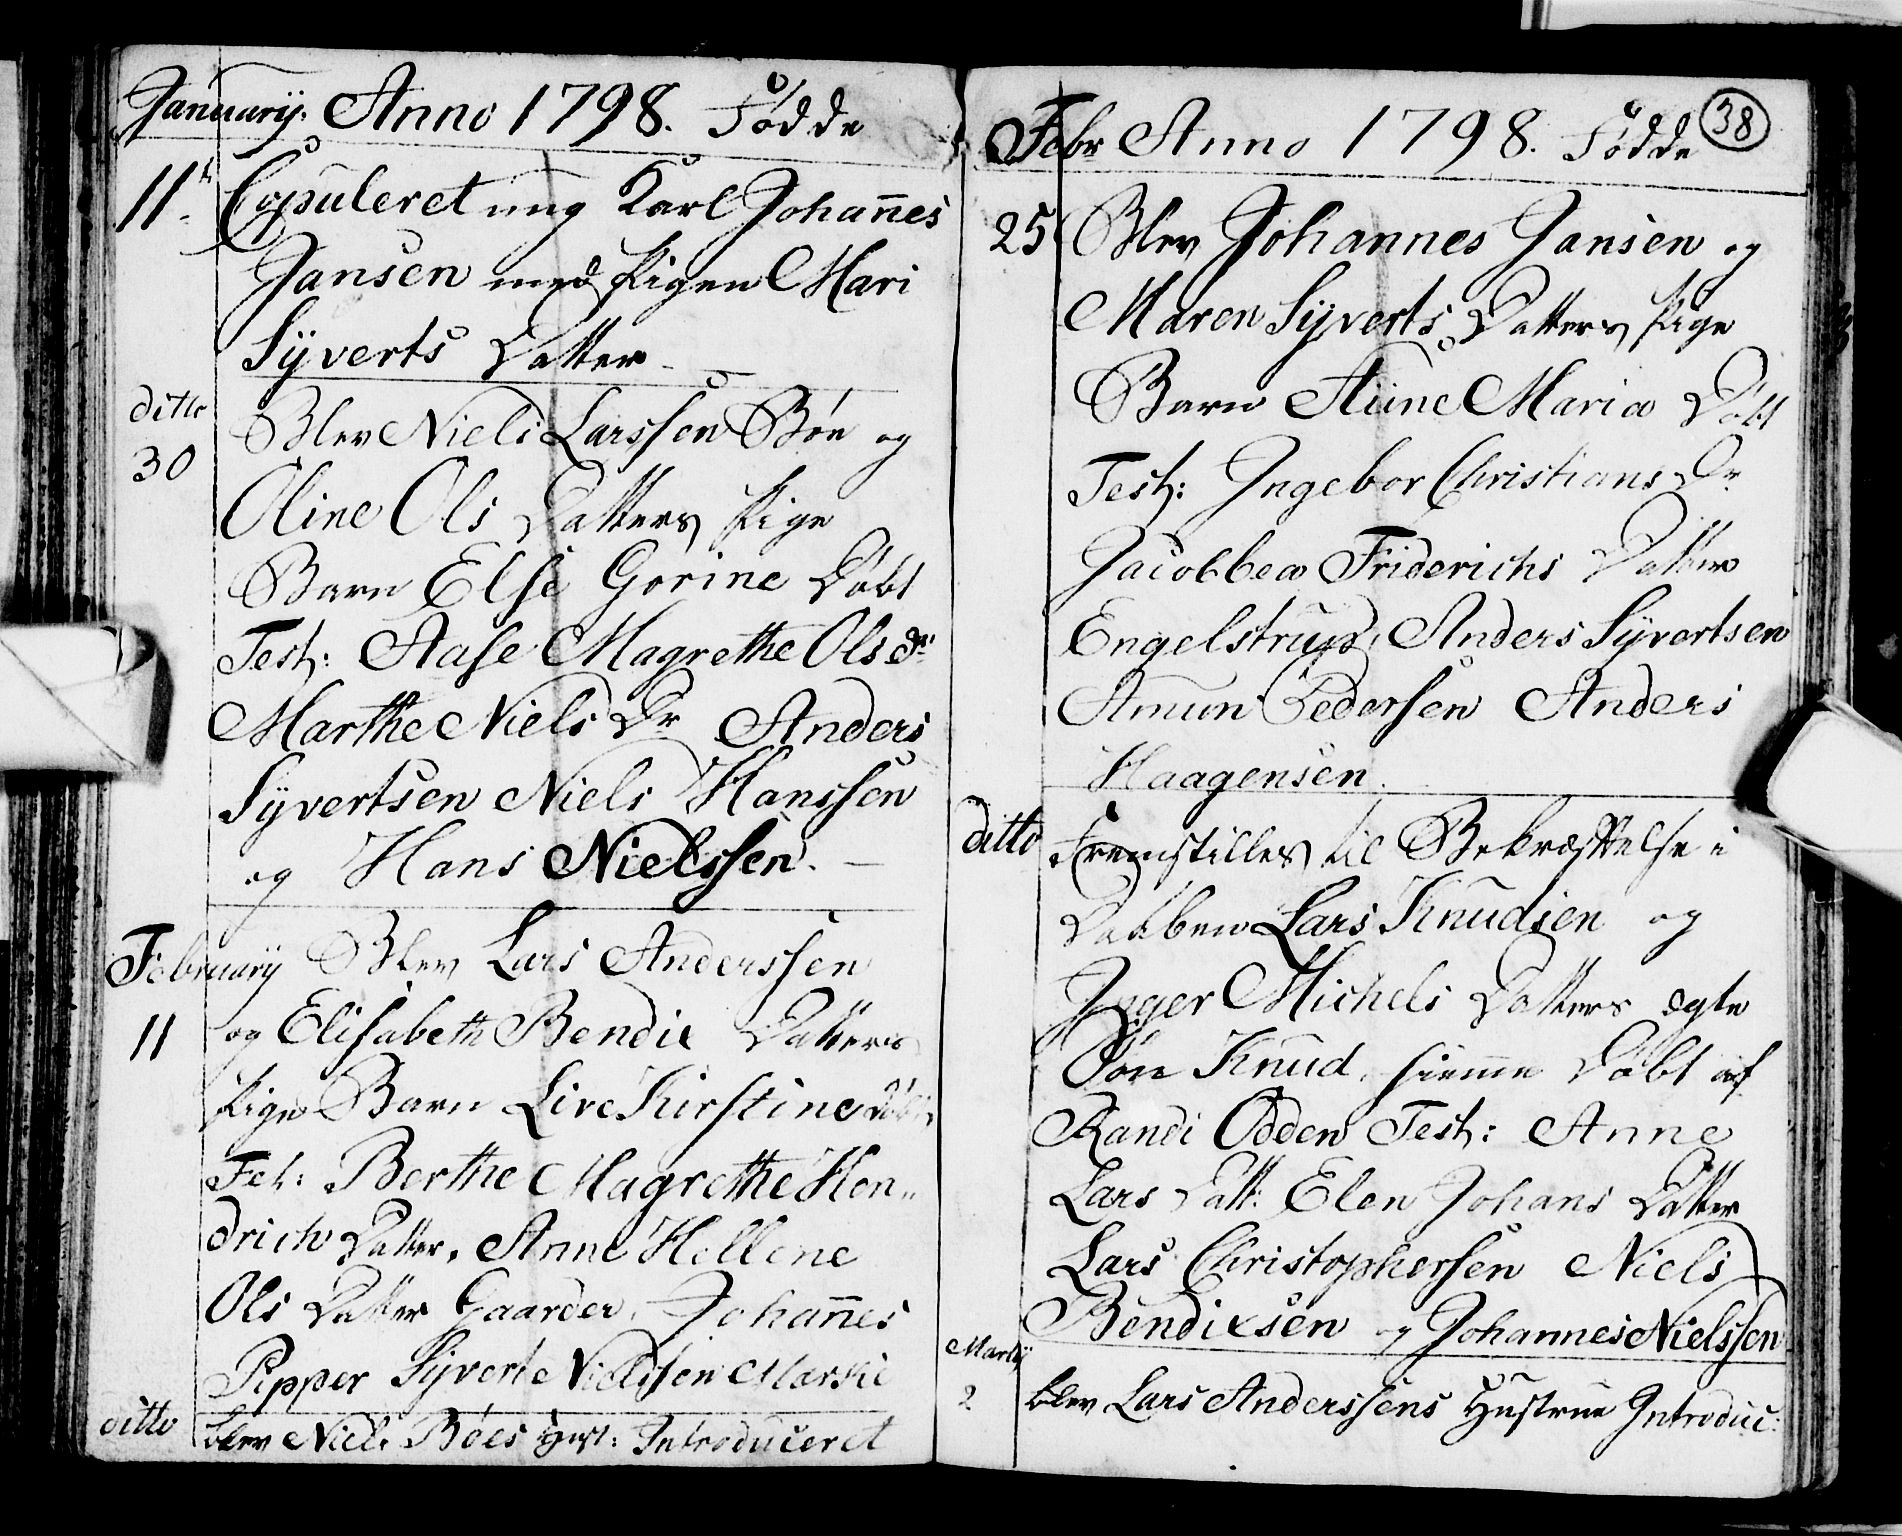 Januarÿ: Anno 1798. Fødde
11te Copuleret ung Karl Johan̄es
Jansen med Pigen Mari
Sÿverts Datter
ditto Blev Niels Larssen Bøe og
30
Oline Ols Datters Pige
Barn Else Gorine Døbt
Test: Aase Magrethe Ols dr
Marthe Niels Dr Anders
Sÿvertsen Niels Hanssen
og Hans Nielssen.
Februarÿ Blev Lars Anderssen
11 og Elisabeth Bendix Datters
Pige Barn Live Kirstine Døbt
Tet: Berthe Magrethe Hen„
drich Datter, Anne Hellene
Ols Datter Gaarder, Johan̄es
Pipper Sÿvert Nielssen
ditto blev Niels Bøes Hust: Introduceret
38
Febr Anno 1798. Fødde
25 Blev Johannes Jansen og
Maren Sÿverts Datters Pige
Barn Aune Maria Døbt
Test: Ingebor Christians Dr
Jacobbea Friderichs Datter
Engelstrud, Anders Sÿvertsen
Amun Pedersen Anders
Haagensen.
ditto Fremstilles til Bekræftelse i
Daabben Lars Knudsen og
Inger Michels Datters ægte
Søn Knud, hiem̄e Døbt af
Randi Odden Test: Anne
Lars Datt: Elen Johans Datter
Lars Christophersen Niels
Bendixsen og Johannes Nielssen
Martÿ
2 blev Lars Anderssens Hustrue Introduc: